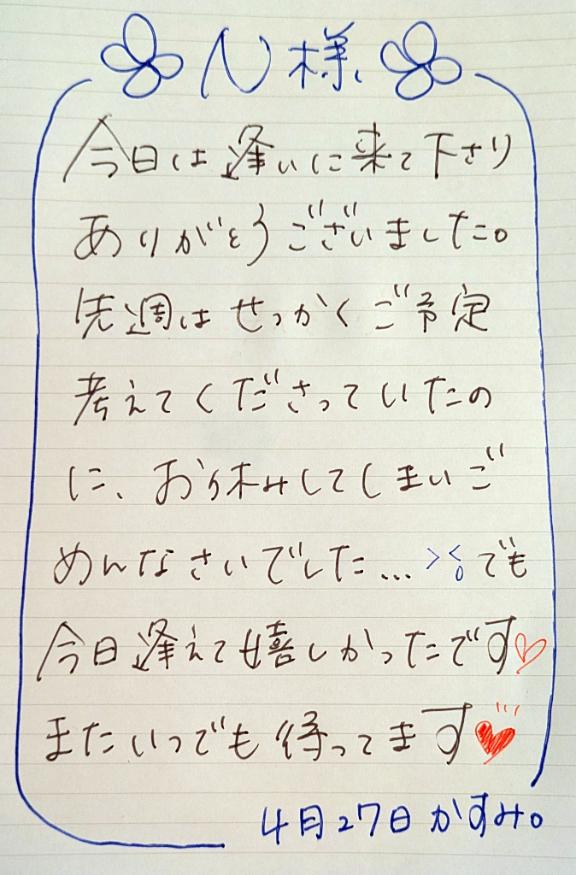 N様
今日は逢いに来て下さり
ありがとうございました。
先週はせっかくご予定
考えてくださっていたの
に、お休みしてしまいご
めんなさいでした...><。でも
今日逢えて嬉しかったです♡
またいつでも待ってます♥
4月27日かすみ。